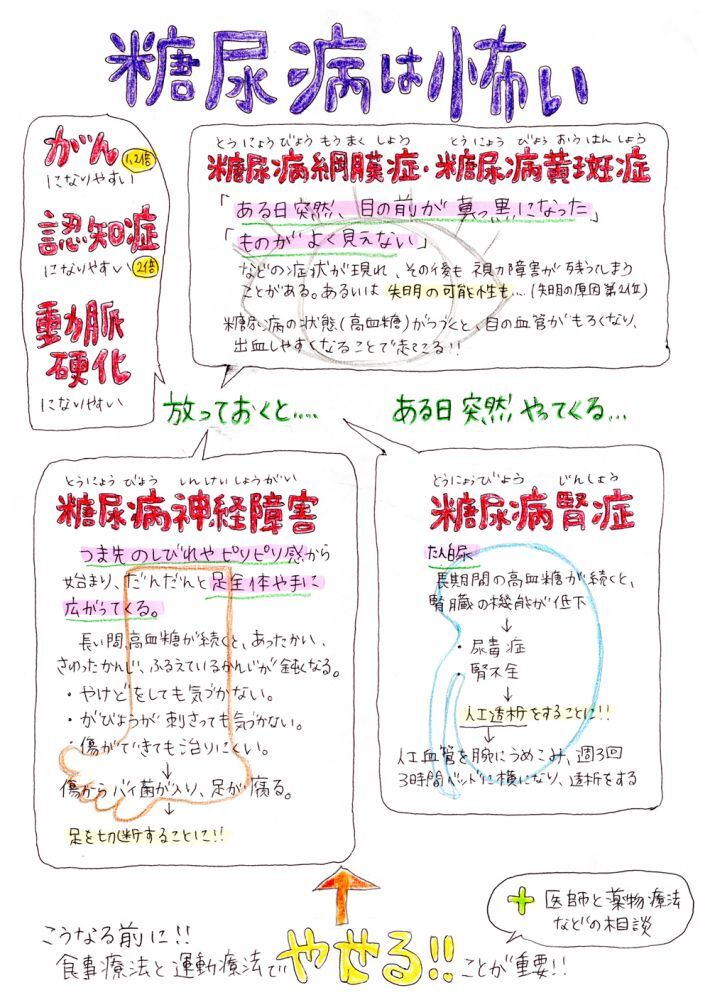 糖尿病は怖い
がん
1.2倍
になりやすい
認知症
になりやすい
2倍
動脈
硬化
になりやすい
とうにょうびょうもうまくしょう とうにょうびょうおうはんしょう
糖尿病網膜症・糖尿病黄斑症
「ある日突然、目の前が真っ黒になった」
「ものがよく見えない」
などの症状が現れ、その後も視力障害が残ってしまう
ことがある。あるいは失明の可能性も…(失明の原因第2位)
糖尿病の状態(高血糖)がつづくと、目の血管がもろくなり、
出血しやすくなることで起こる!!
放っておくと…‥ ある日突然やってくる…
とうにょうびょう しんけいしょうがい
糖尿病神経障害
つま先のしびれやピリピリ感から
始まり、だんだんと足全体や手に
広がってくる。
長い間、高血糖が続くと、あったかい、
さわったかんじ、ふるえているかんじが鈍くなる。
・やけどをしても気づかない。
・がびょうが刺さっても気づかない。
・傷ができても治りにくい。
↓
傷からバイ菌が入り、足が腐る。
↓
足を切断することに!!
とうにょうびょう じんしょう
糖尿病腎症
たん白尿
長期間の高血糖が続くと、
腎臓の機能が低下
↓
・尿毒症
・腎不全
↓
人工透析をすることに!!
↓
人工血管を腕にうめこみ、週3回
3時間ベッドに横になり、透析をする
+ 医師と薬物療法
などの相談
こうなる前に!!
食事療法と運動療法でやせる!!ことが重要!!